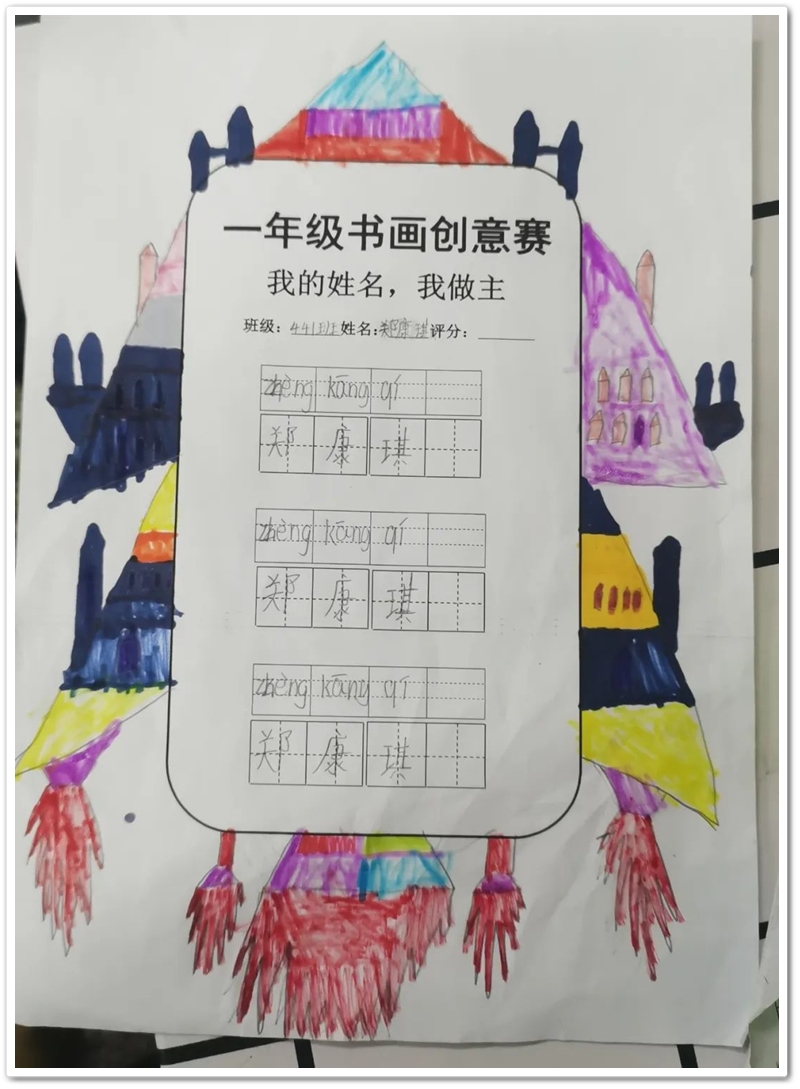 一年级书画创意赛
我的姓名，我做主
班级：441班 姓名：郑康琪 评分：
zhèng kāng qí
郑 康 琪
zhèng kāng qí
郑 康 琪
zhèng kāng qí
郑 康 琪